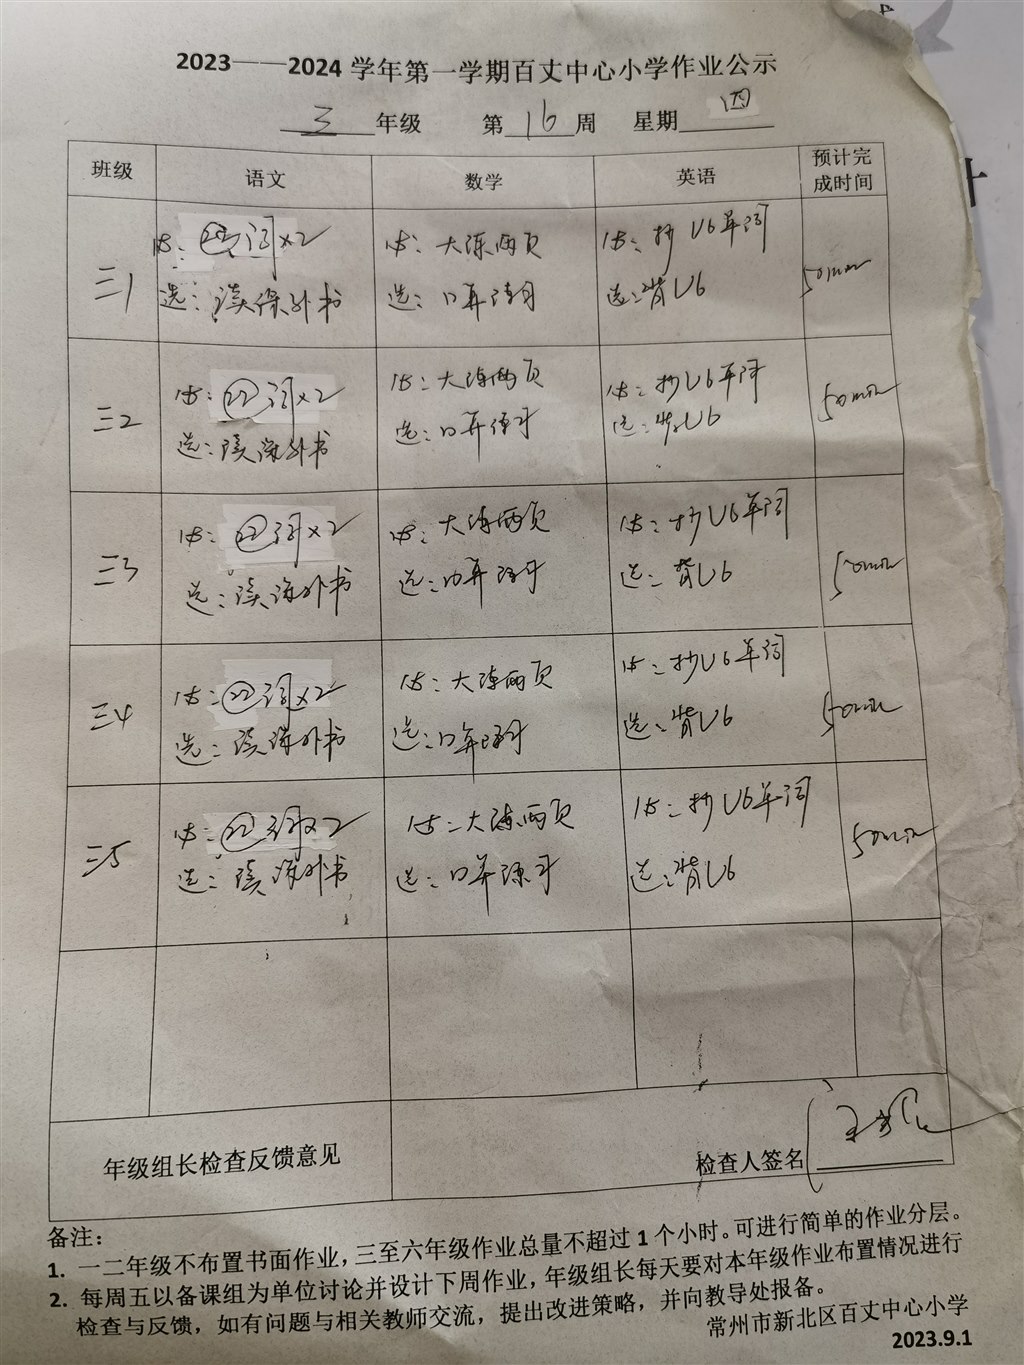 2023——2024 学年第一学期百丈中心小学作业公示
3 年级 第 16 周 星期 四
班级 语文 数学 英语 预计完成时间
三1
必: 词×2
选: 读课外书
必: 大练两页
选: 口算
必: 抄U6单词
选: 背U6
50min
三2
必: 22词×2
选: 读课外书
必: 大练两页
选: 口算
必: 抄U6单词
选: 背U6
50min
三3
必: 22词×2
选: 读课外书
必: 大练两页
选: 口算
必: 抄U6单词
选: 背U6
50min
三4
必: 22词×2
选: 读课外书
必: 大练两页
选: 口算
必: 抄U6单词
选: 背U6
50min
三5
必: 22词×2
选: 读课外书
必: 大练两页
选: 口算
必: 抄U6单词
选: 背U6
50min
年级组长检查反馈意见
检查人签名
备注：
1. 一二年级不布置书面作业，三至六年级作业总量不超过 1 个小时。可进行简单的作业分层。
2. 每周五以备课组为单位讨论并设计下周作业，年级组长每天要对本年级作业布置情况进行
检查与反馈，如有问题与相关教师交流，提出改进策略，并向教导处报备。
常州市新北区百丈中心小学
2023.9.1